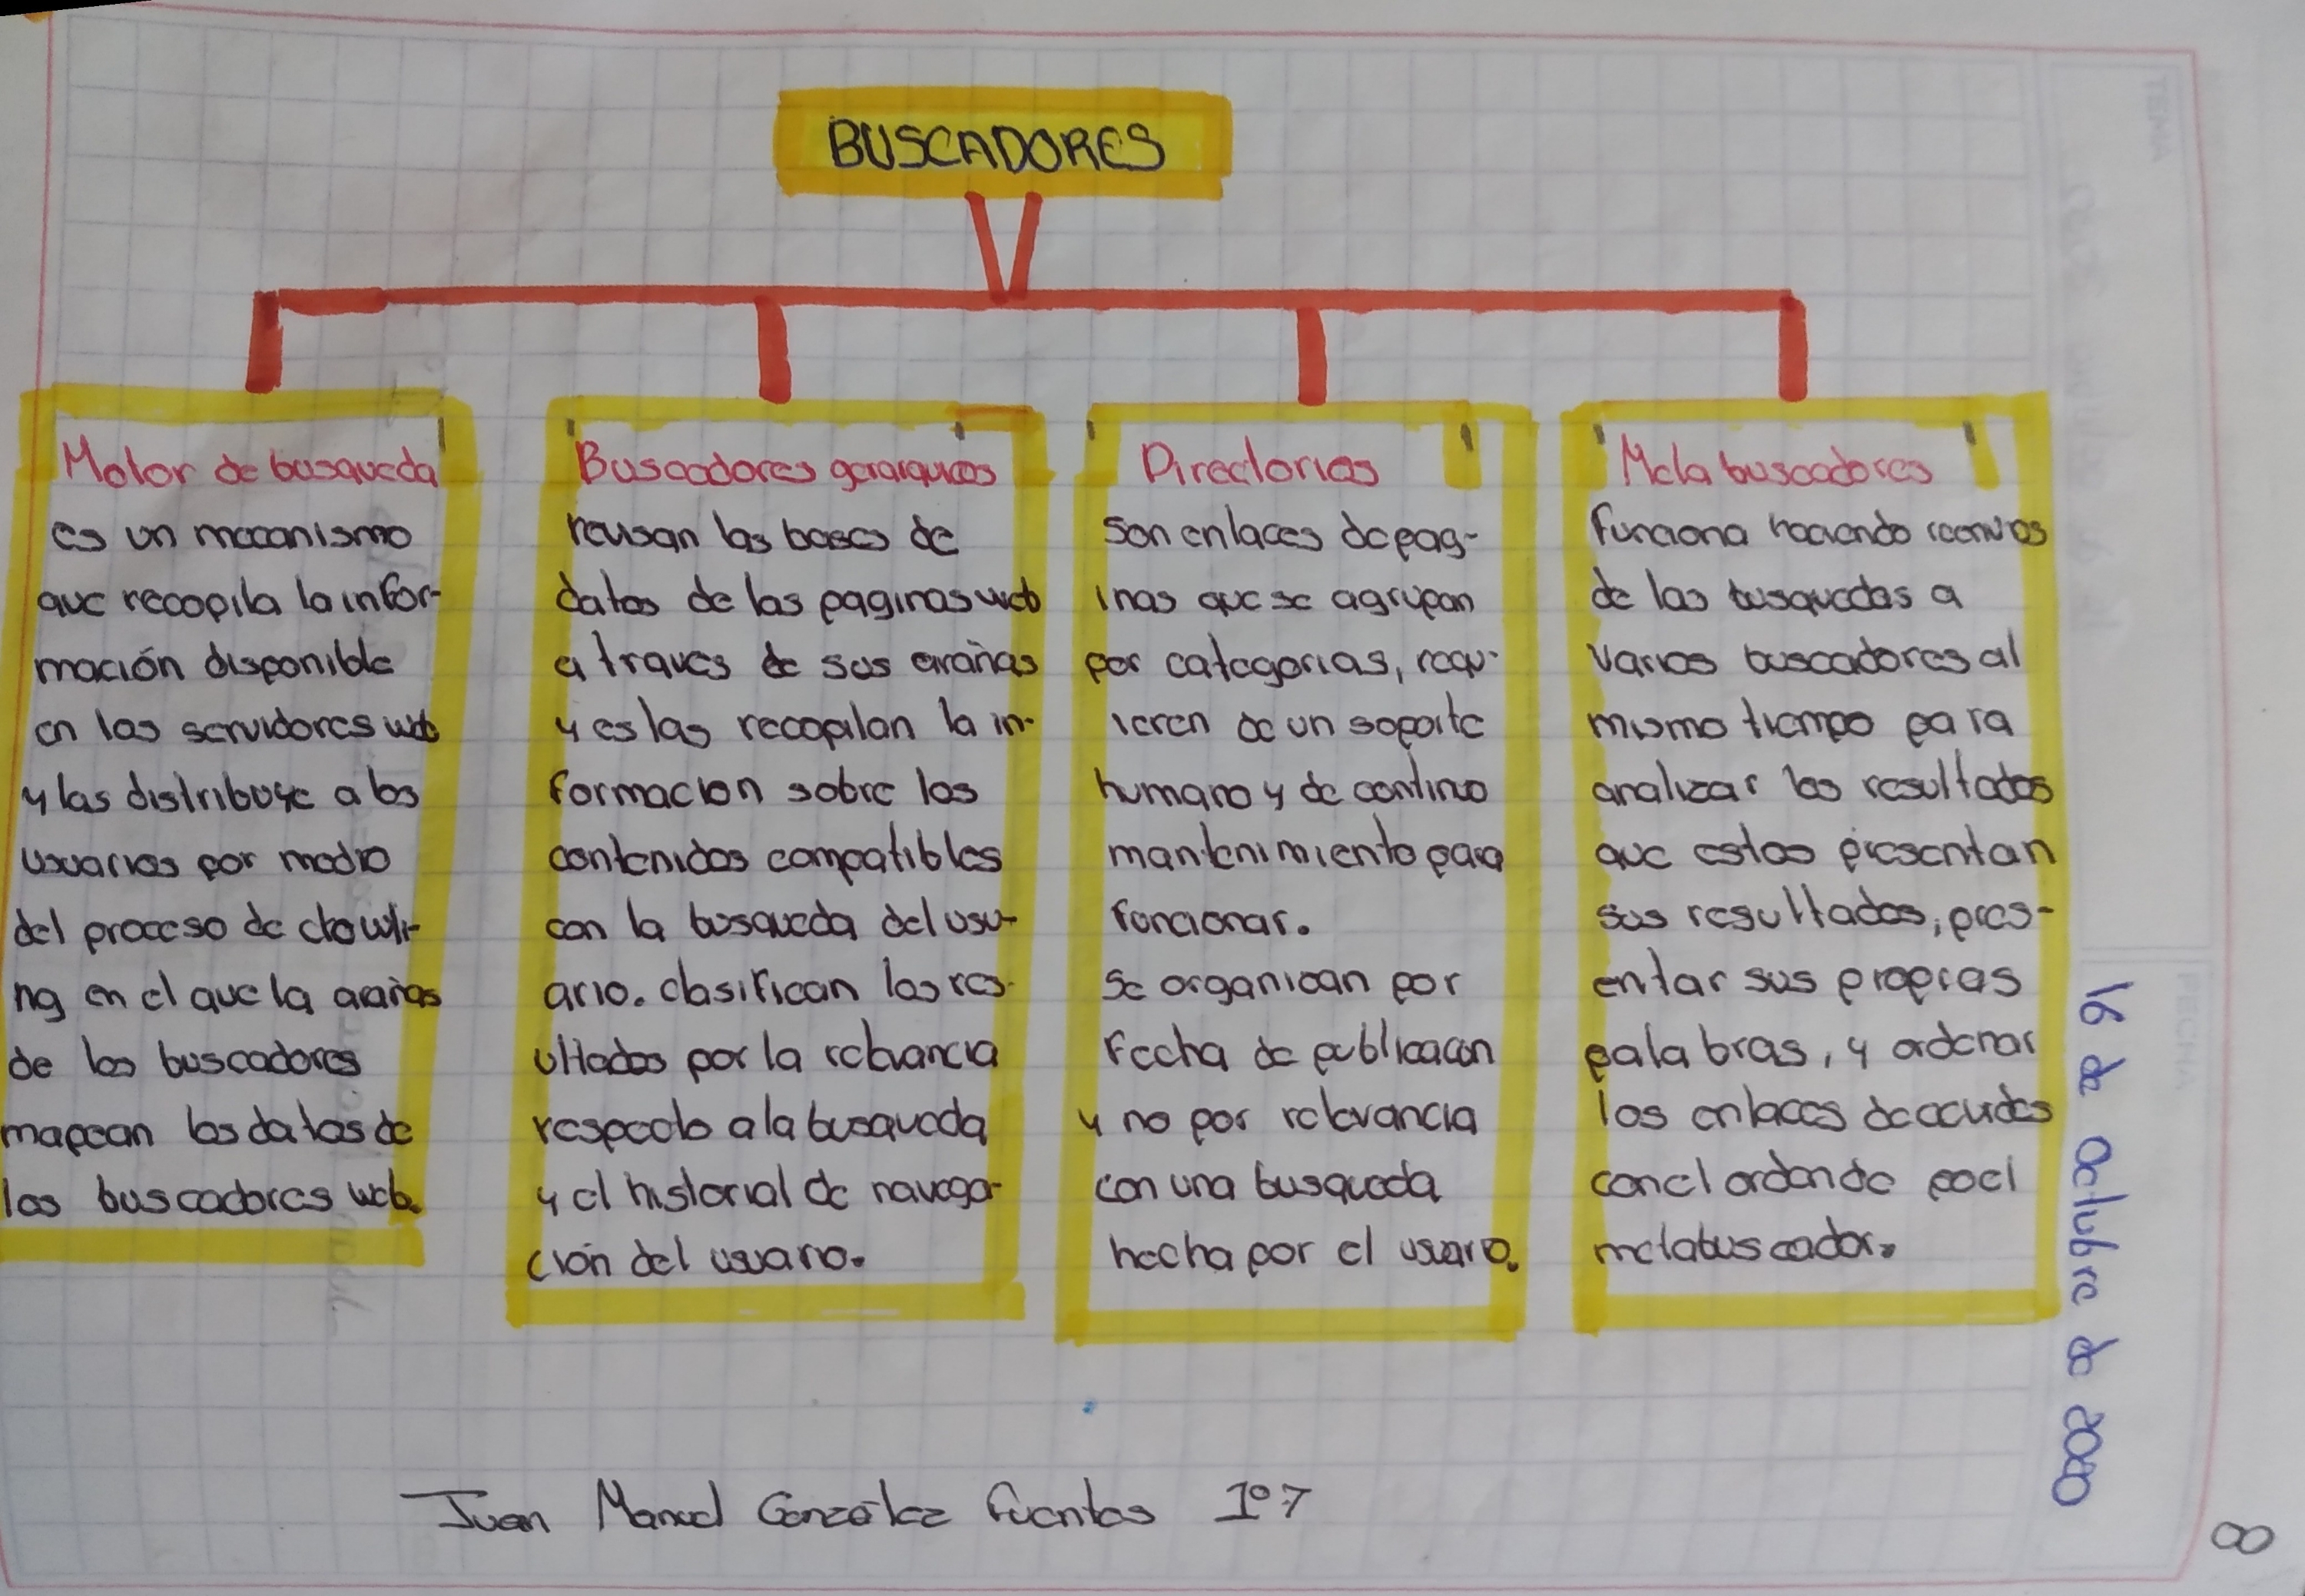 BUSCADORES
Motor de busqueda
es un mecanismo
que recopila la infor-
mación disponible
en los servidores web
y las distribuye a los
usuarios por medio
del proceso de clowli-
ng en el que la arañas
de los buscadores
mapean los datos de
los buscadores web.
Buscadores gerarquicos
revisan las bases de
datos de las paginas web
a traves de sus arañas
y estas recopilan la in-
formacion sobre los
contenidos compatibles
con la busqueda del usu-
ario. clasifican los res-
ultados por la relevancia
respecto a la busqueda
y el historial de navega-
ción del usuario.
Directorios
Son enlaces de pag-
inas que se agrupan
por categorias, requ-
ieren de un soporte
humano y de continuo
mantenimiento para
funcionar.
Se organizan por
fecha de publicacion
y no por relevancia
con una busqueda
hecha por el usuario.
Meta buscadores
funciona haciendo reenvios
de las busquedas a
varios buscadores al
mismo tiempo para
analizar los resultados
que estos presentan
sus resultados, pres-
entar sus propias
palabras, y ordenar
los enlaces de
con el
metabuscador.
16 de Octubre de 2020
Juan Manuel González Fuentes 1º7
8
TEMA
FECHA